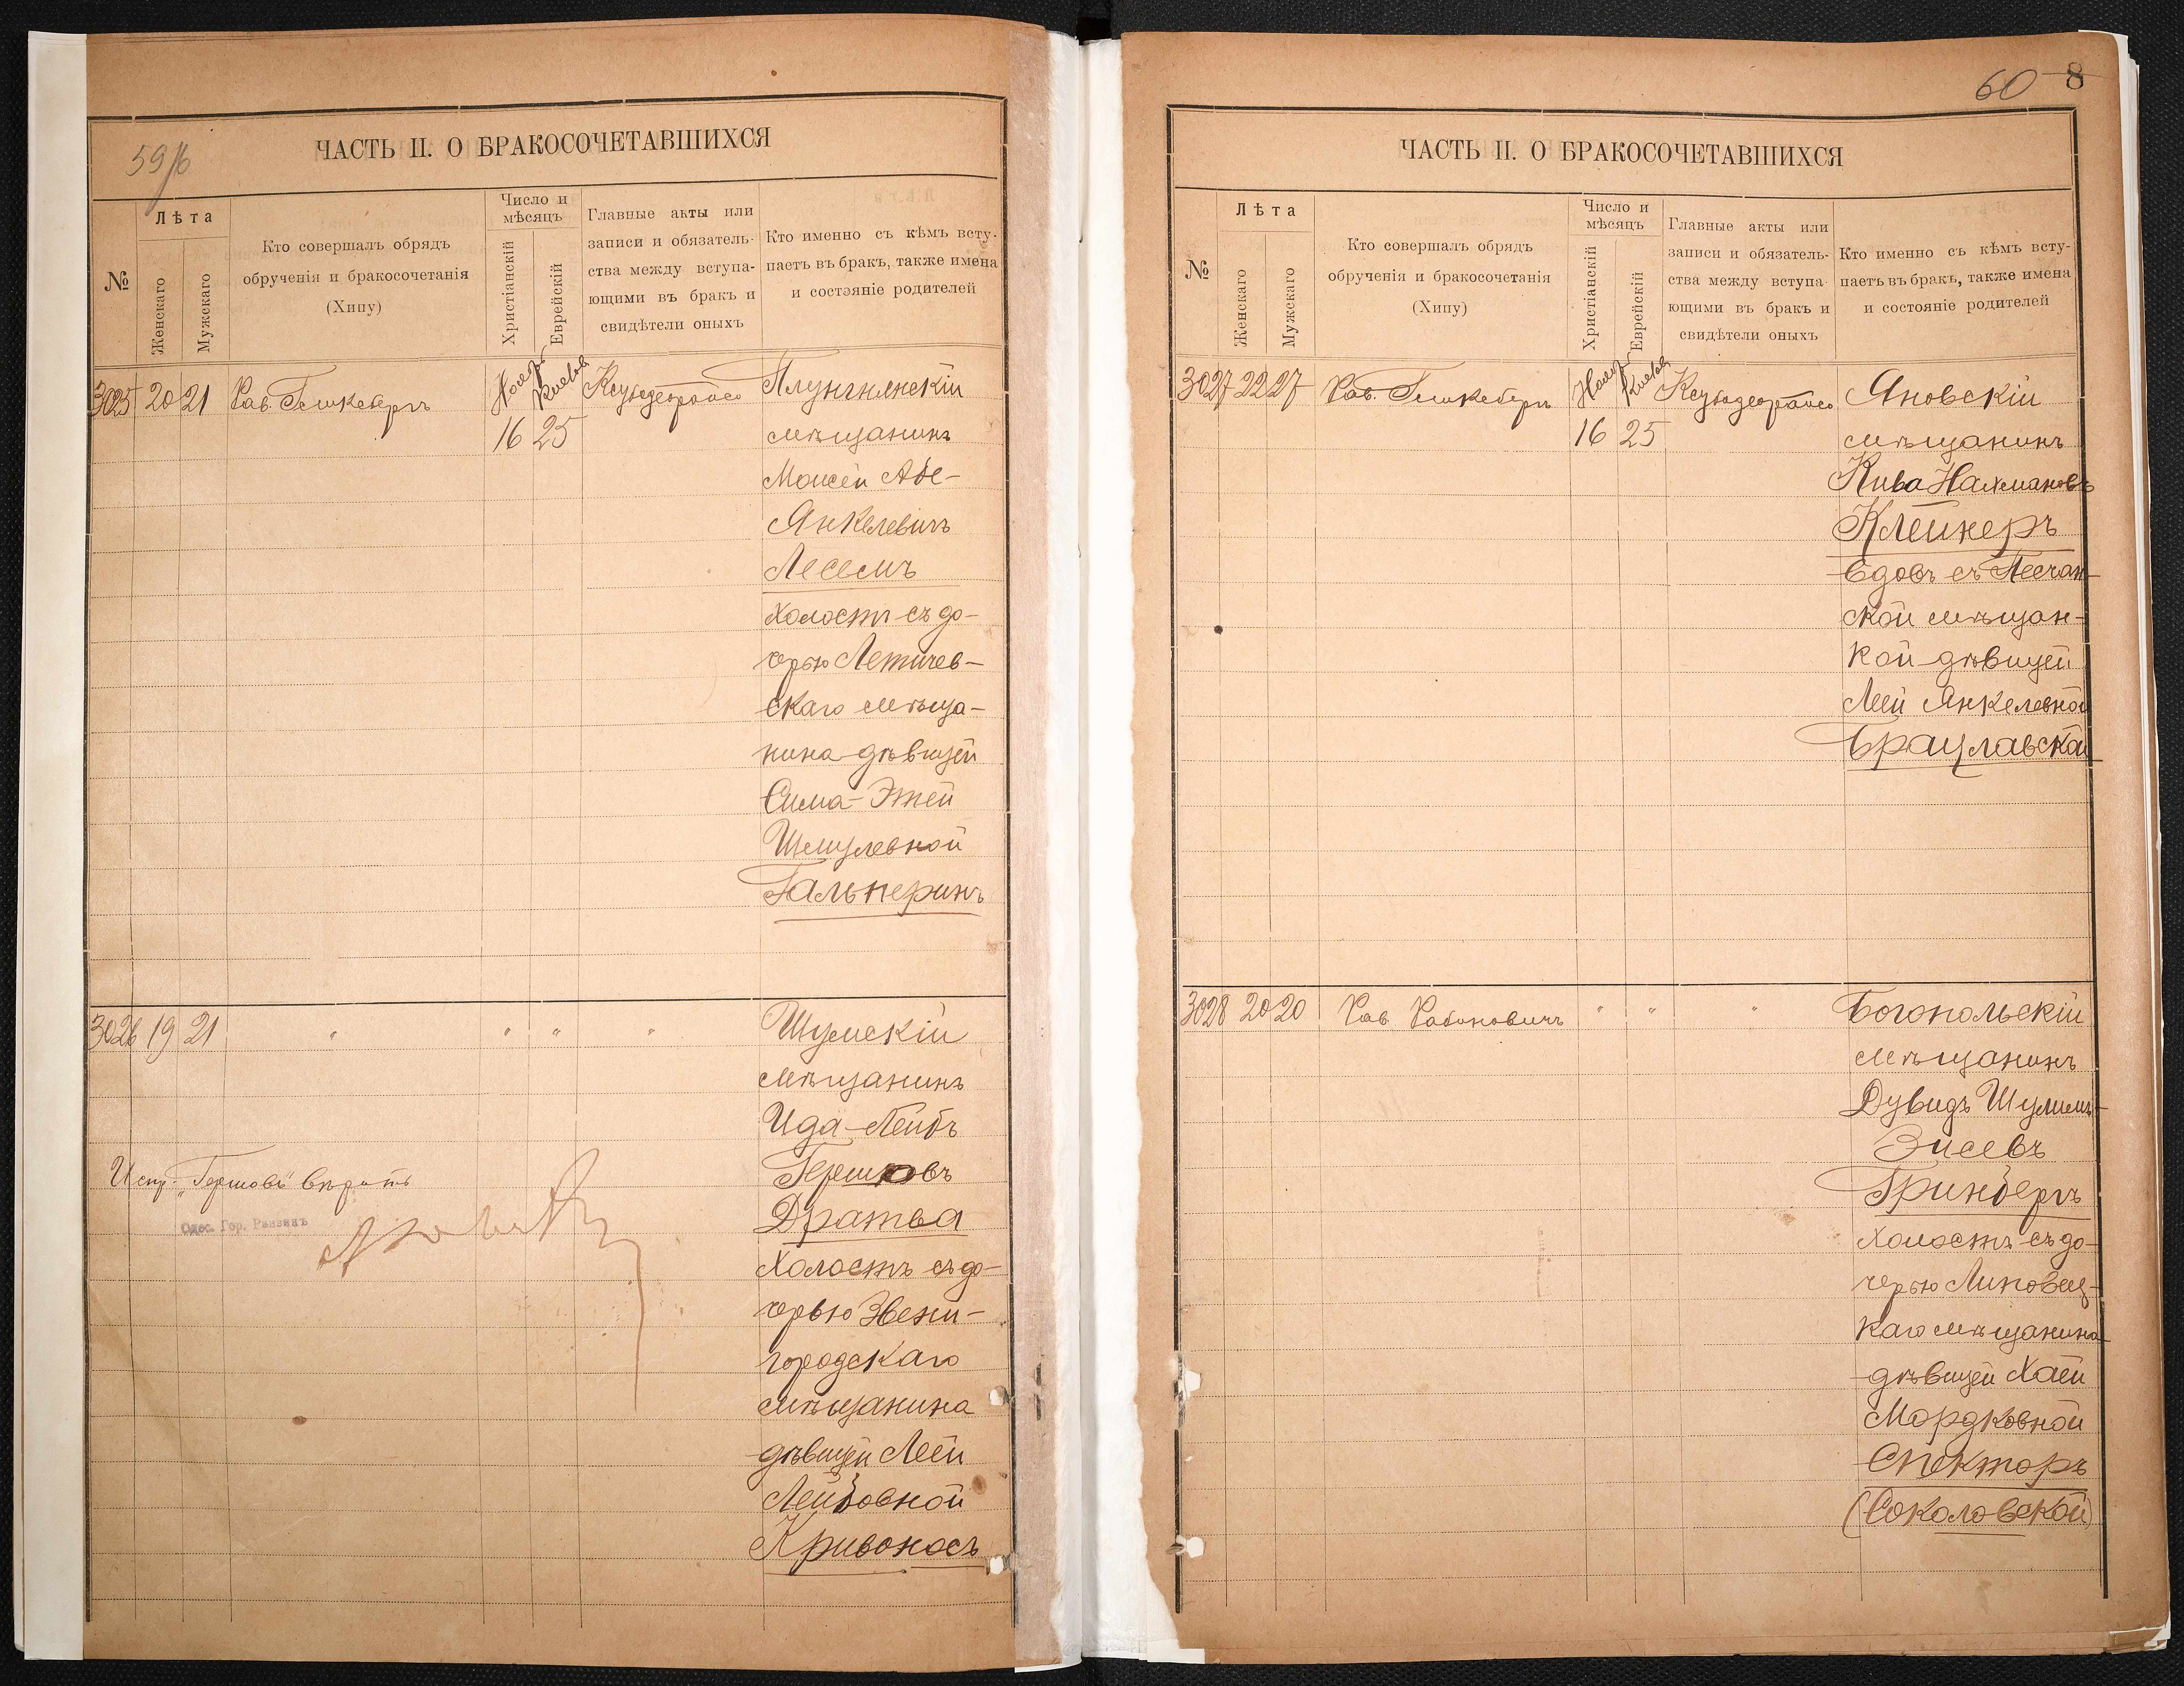 59/б
ЧАСТЬ II. О БРАКОСОЧЕТАВШИХСЯ
№
Лѣта
Женскаго
Мужскаго
Кто совершалъ обрядъ
обрученія и бракосочетанія
(Хипу)
Число и
мѣсяцъ
Христіанскій
Еврейскій
Главные акты или
записи и обязатель-
ства между вступа-
ющими въ бракъ и
свидѣтели оныхъ
Кто именно съ кѣмъ всту-
паетъ въ бракъ, также имена
и состояніе родителей
3025 20 21 Рав.
16 25
Плунгянскій
мѣщанинъ
Моисей Абе-
Янкелевичъ
Лесемъ
холостъ съ до-
черью Летичев-
скаго мѣща-
нина дѣвицей
Сима-Этей
Шмулевной
Гальперинъ
3026 19 21 " " " "
Шумскій
мѣщанинъ
Ида-Лейбъ
Гершковъ
Дратва
Холостъ съ до-
черью Звени-
городскаго
мѣщанина
дѣвицей Леей
Лейбовной
Кривоносъ
Испр. "Гершковъ" вѣрить
Одес. Гор. Раввинъ
60 8
ЧАСТЬ II. О БРАКОСОЧЕТАВШИХСЯ
№
Лѣта
Женскаго
Мужскаго
Кто совершалъ обрядъ
обрученія и бракосочетанія
(Хипу)
Число и
мѣсяцъ
Христіанскій
Еврейскій
Главные акты или
записи и обязатель-
ства между вступа-
ющими въ бракъ и
свидѣтели оныхъ
Кто именно съ кѣмъ всту-
паетъ въ бракъ, также имена
и состояніе родителей
3027 22 27 Рав.
16 25
Яновскій
мѣщанинъ
Кива Нахмановъ
Клейнеръ
вдовъ съ Песчан-
ской мѣщан-
кой дѣвицей
Леей Янкелевной
Брацлавской
3028 20 20 Рав Рабиновичъ " " "
Богопольскій
мѣщанинъ
Дувидъ Шулимъ-
Зисевъ
Гринбергъ
холостъ съ до-
черью Липовец-
каго мѣщанина
дѣвицей Хаей
Мордковной
Спекторъ
(Соколовской)